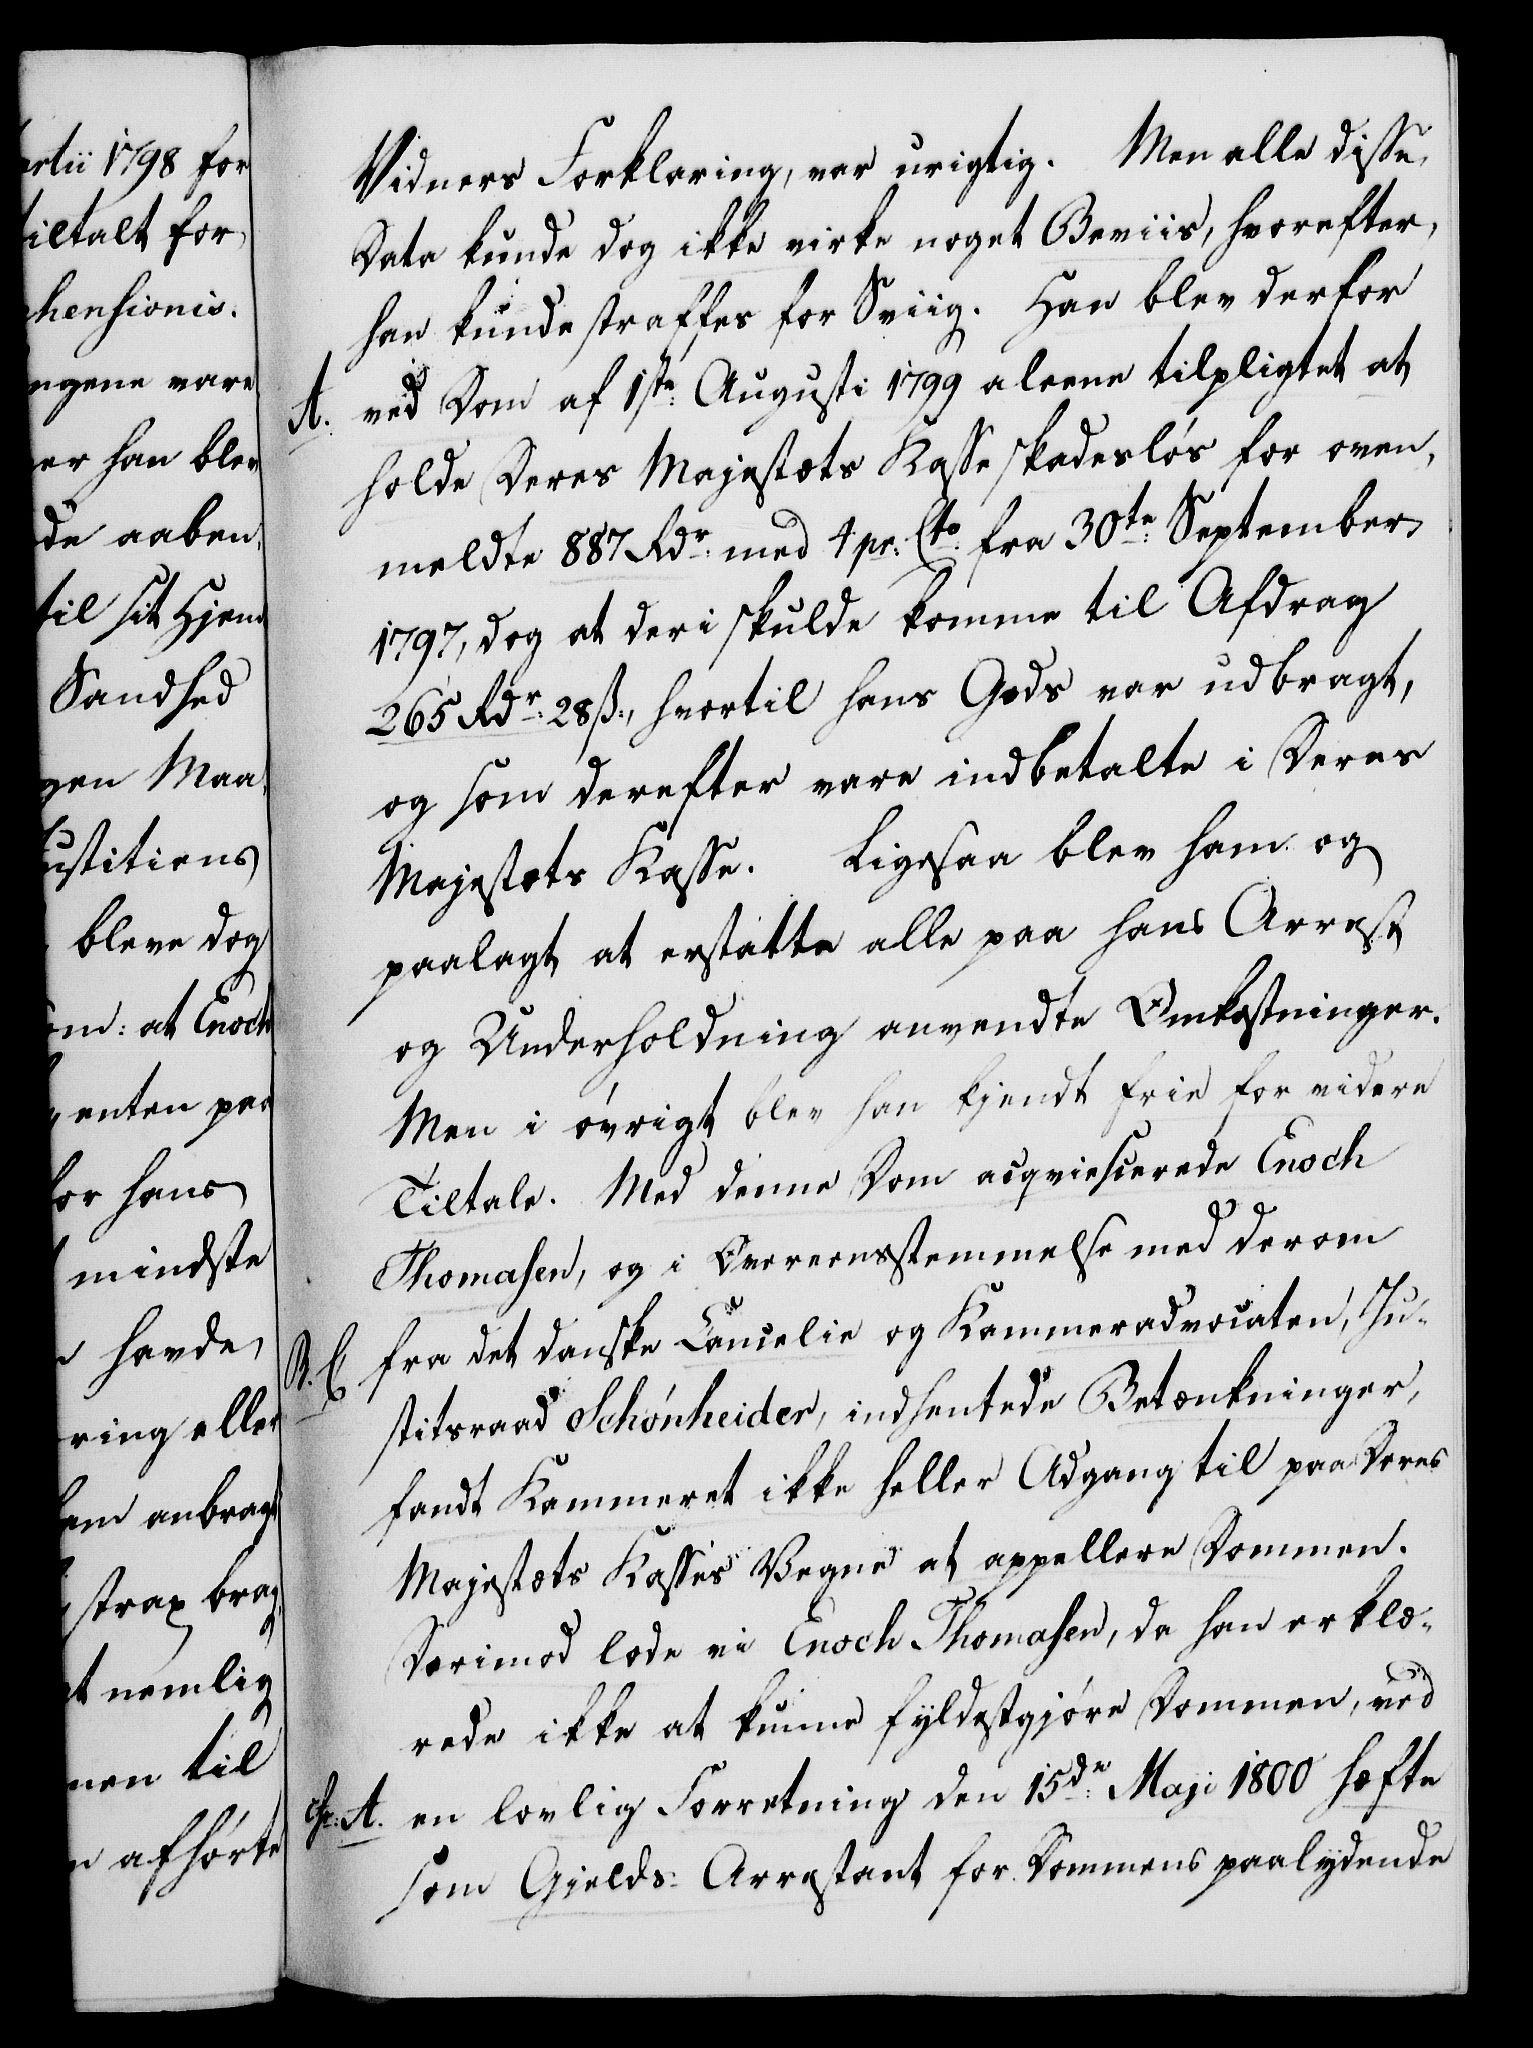 artii 1798 for
tiltalt for
hensionis.
ngene vare
er han blev
de aaben
til sit Hjem
Sandhed
gen Maa
ustitiens
bleve dog
om: at Enoch
enten paa
for hans
mindste
havde
ring eller
ham anbragt
strax brag
t nemlig
nen til
n afhørte
Vidners Forklaring, var urigtig. Men alle disse
Data kunde dog ikke virke noget Beviis, hvorefter
han kunde straffes for Sviig. Han blev derfor
A. ved Dom af 1ste Augusti 1799 aleene tilpligtet at
holde Deres Majestæts Kasse skadesløs for oven-
meldte 887 Rdr. med 4 pr. Cto. fra 30te September
1797, dog at deri skulde komme til Afdrag
265 Rdr. 28 ß., hvortil hans Gods var udbragt,
og som derefter vare indbetalte i Deres
Majestæts Kasse. Ligesaa blev ham og
paalagt at erstatte alle paa hans Arrest
og Underholdning anvendte Omkostninger.
Men i øvrigt blev han kjendt frie for videre
Tiltale. Med denne Dom acqviescerede Enoch
Thomasen, og i Overeensstemmelse med derom
B. C. fra det danske Cancelie og Kammeradvocaten, Ju-
stitsraad Schønheider, indhentede Betænkninger,
fandt Kammeret ikke heller Adgang til paa Deres
Majestæts Kasses Vegne at appellere Dommen.
Derimod lode vi Enoch Thomasen, da han erklæ-
rede ikke at kunne fyldestgjøre Dommen, ved
A. en lovlig Forretning den 15de Maji 1800 hæfte
som Gjelds-Arrestant for Dommens paalydende